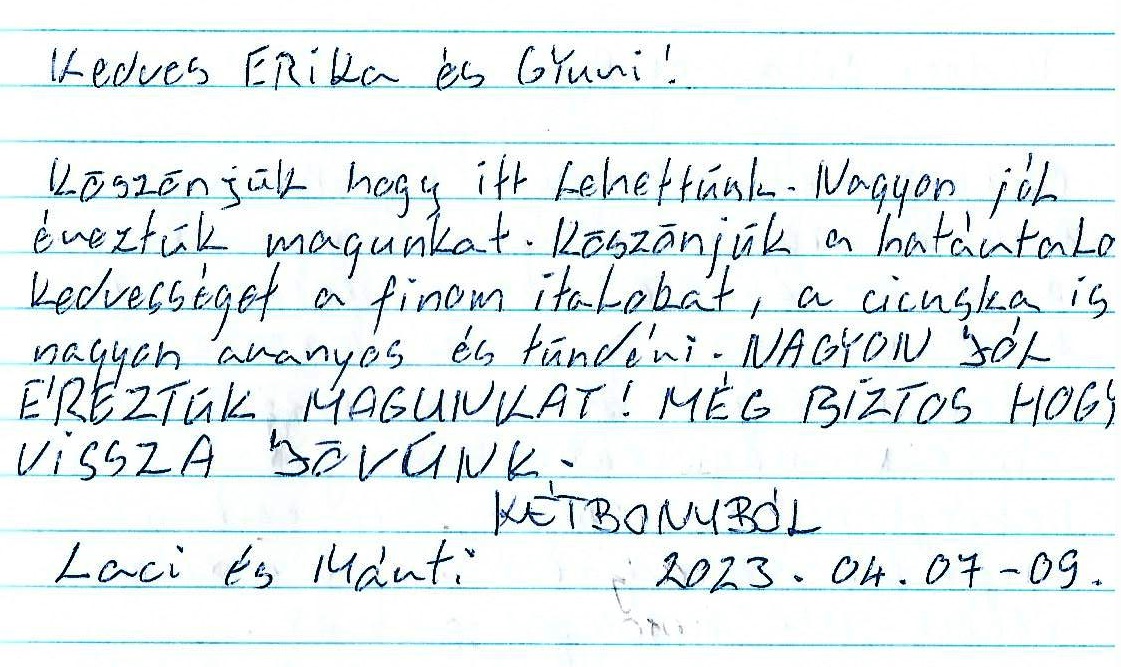 Kedves ERiKa és GYuri!
Köszönjük hogy itt Lehettünk. Nagyon jóL
éreztük magunkat. Köszönjük a határtaLa
kedvességet a finom itaLokat, a cicuska is
nagyon aranyos és tündéri. NAGYON JÓL
ÉREZTÜK MAGUNKAT! MÉG BIZTOS HOGY
VISSZA JÖVÜNK.
KÉTBONYBÓL
Laci és Márti
2023. 04. 07-09.